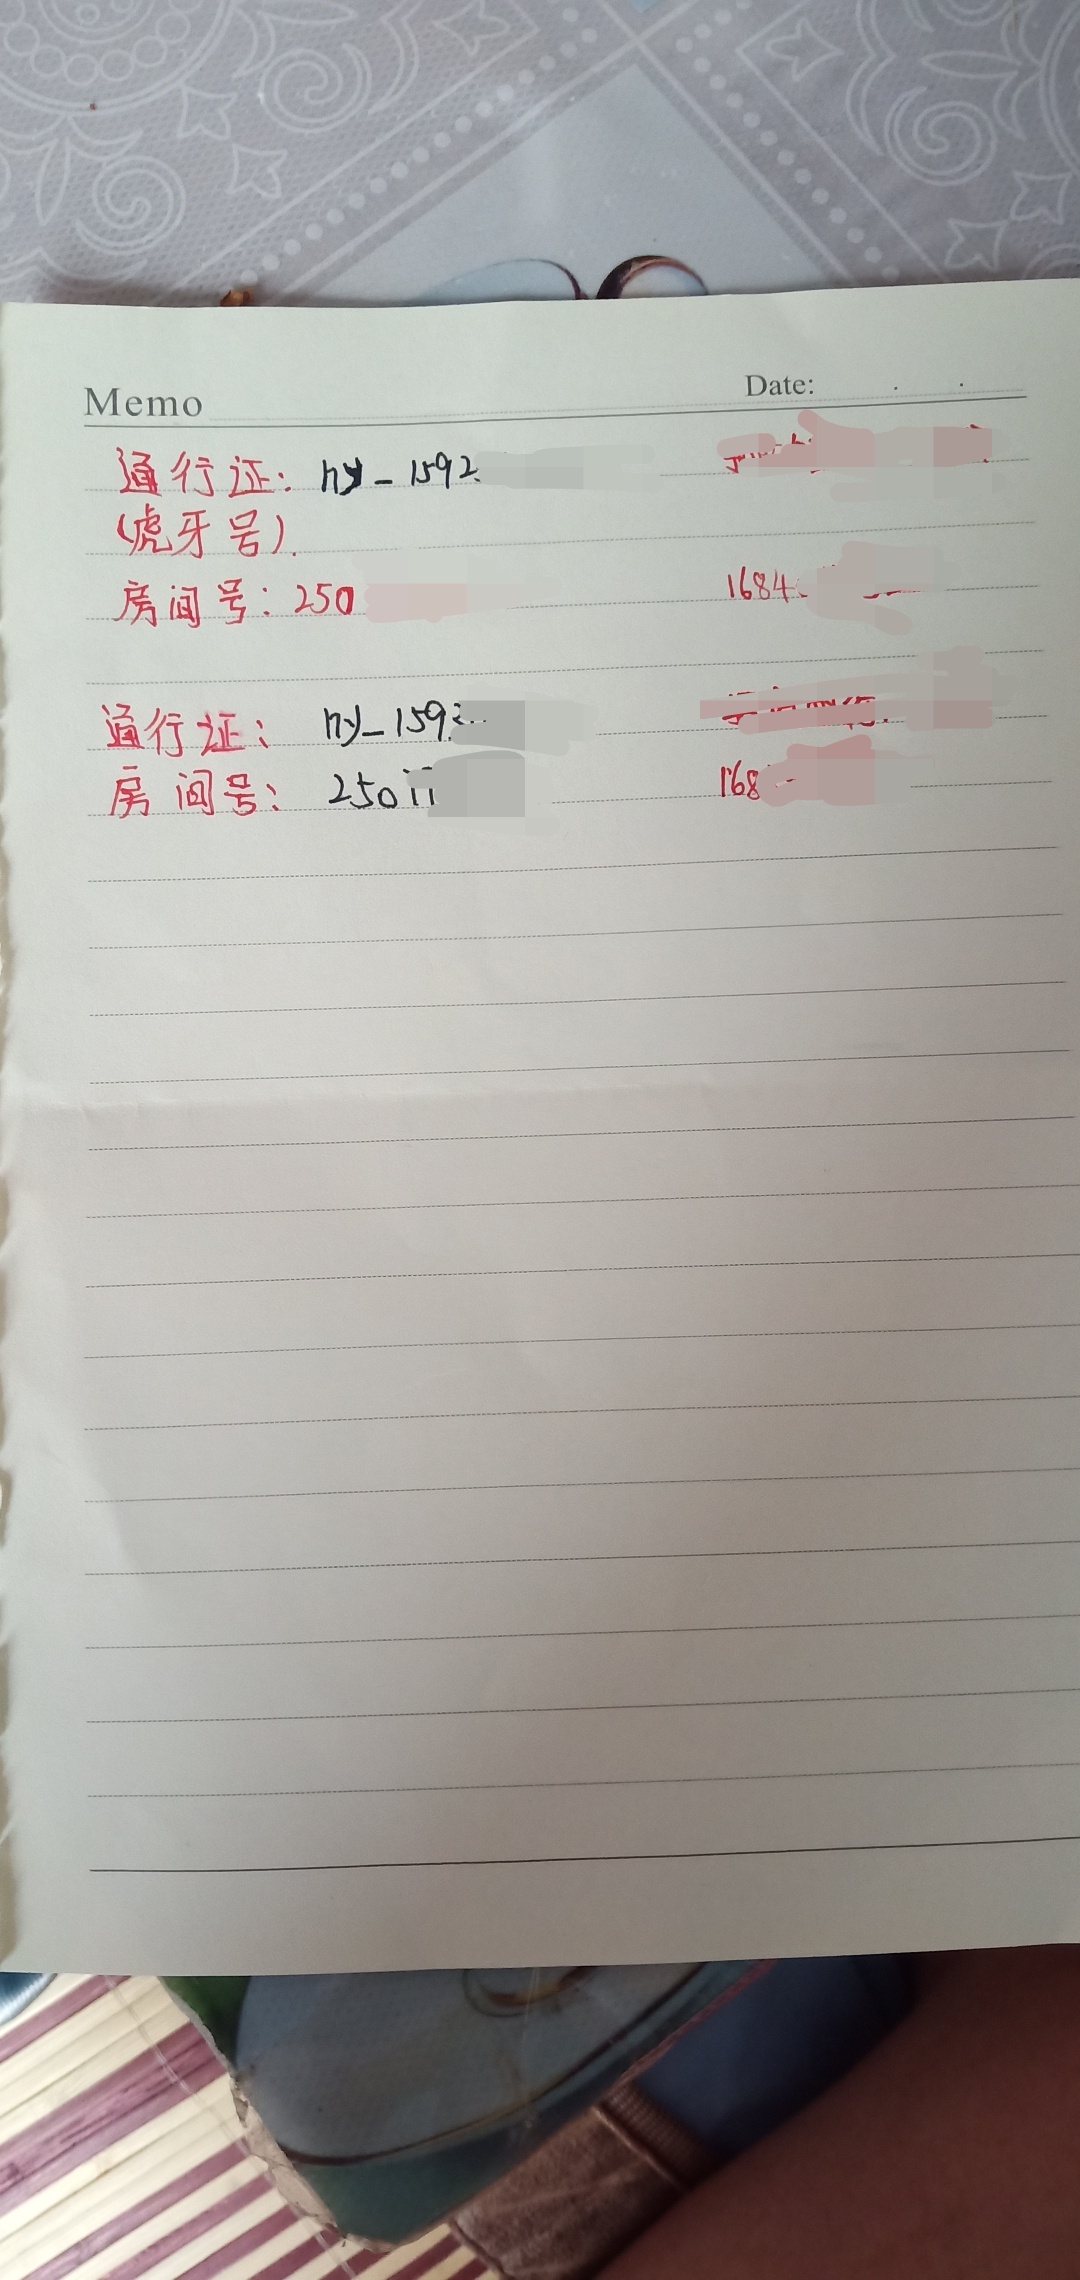 Memo Date:
通行证: hy-1592
(虎牙号).
房间号: 250 1684
通行证: hy-159
房间号: 250 168